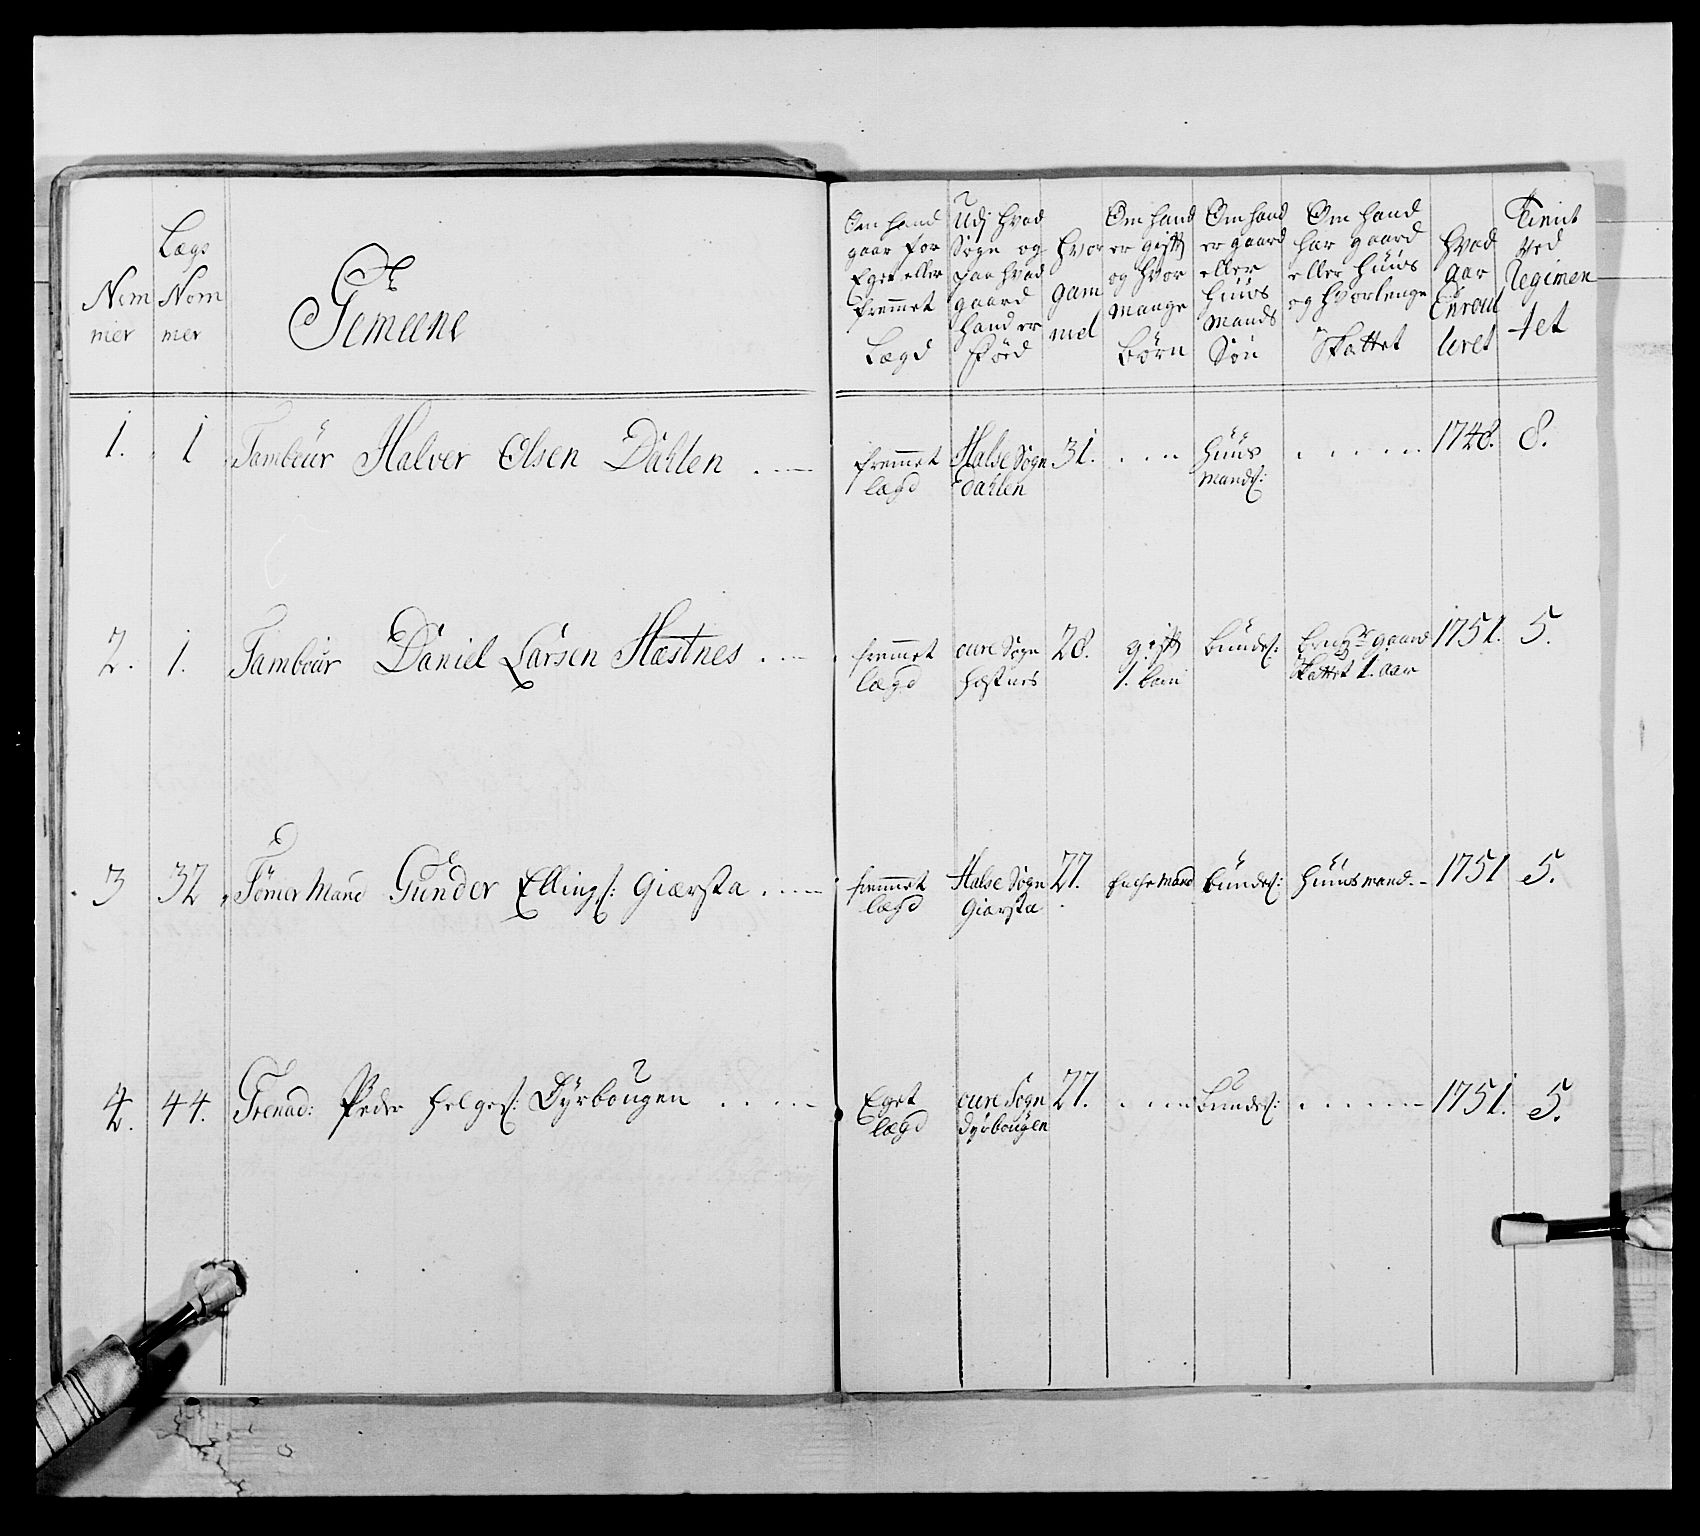 Nom
mer
Lægs
Nom
mer
Gemeene
Om hand
gaar for
Eget eller
fremmet
Lægd
Udj hvad
Sogn og
paa hvad
gaard
hand er
fød
hvor
gam
mel
Om hand
er gift
og hvor
mange
børn
Om hand
er gaard
eller
huus
mands
Søn
Om hand
har gaard
eller huus
og hvorlenge
Skattet
hvad
aar
Enroul
leret
Tient
ved
Regimen
tet
1. 1 Tambour Halver Olsen Dahlen
fremmet
lægd
Halse Sogn
Dahlen
31.
huus
mands:
1748. 8.
2. 1. Tambour Daniel Larsen Hæstnes
fremmet
lægd
oure Sogn
hæstnes
28.
gift
1. barn
bundes:
gaard
Skattet 1. aar
1751. 5.
3 32 Tømer Mand Gunder Ellings: Giærsta
fremmet
lægd
Halse Sogn
Giærsta
27.
Enche Mand
bundes:
huusmand.
1751 5.
4. 44. Grenad: Peder Helges: Dyrbougen
Eget
lægd
oure Sogn
Dyrbougen
27.
Bundes:
1751. 5.